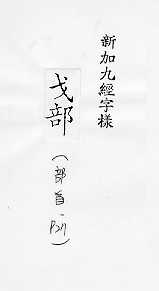 新加九經字樣
戈部
(部首